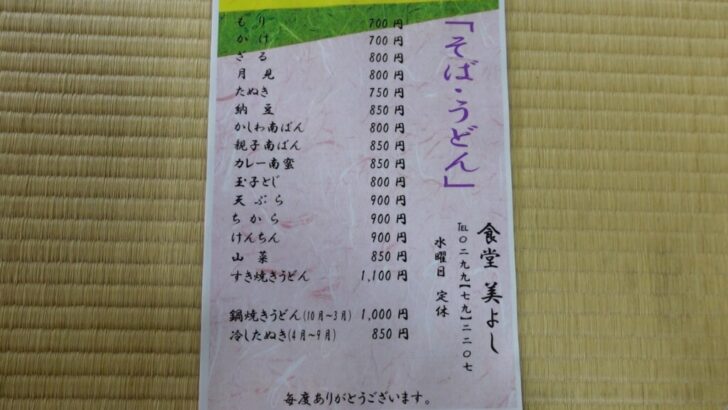 「そば・うどん」
もり 700円
かけ 700円
ざる 800円
月見 800円
たぬき 750円
納豆 850円
かしわ南ばん 800円
親子南ばん 850円
カレー南蛮 850円
玉子とじ 800円
天ぷら 900円
ちから 900円
けんちん 900円
山菜 850円
すき焼きうどん 1,100円
鍋焼きうどん(10月~3月) 1,000円
冷したぬき(4月~9月) 850円
食堂 美よし
℡〇二九九【七九】二二〇七
水曜日 定休
毎度ありがとうございます。